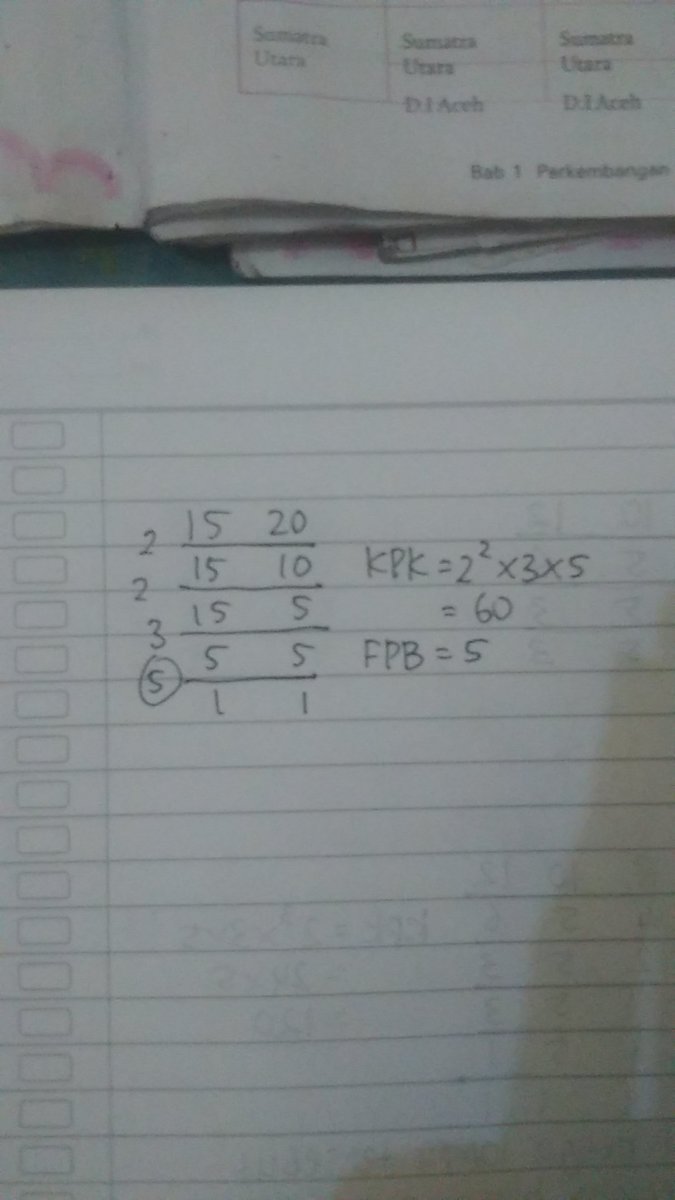 Sumatra Sumatra Sumatra
Utara Utara Utara
D.I Aceh D.I Aceh
Bab 1 Perkembangan
2 15 20
2 15 10 KPK = 2² × 3 × 5
3 15 5 = 60
5 5 5 FPB = 5
1 1